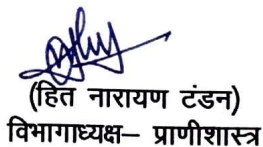 (हित नारायण टंडन)
विभागाध्यक्ष– प्राणीशास्त्र